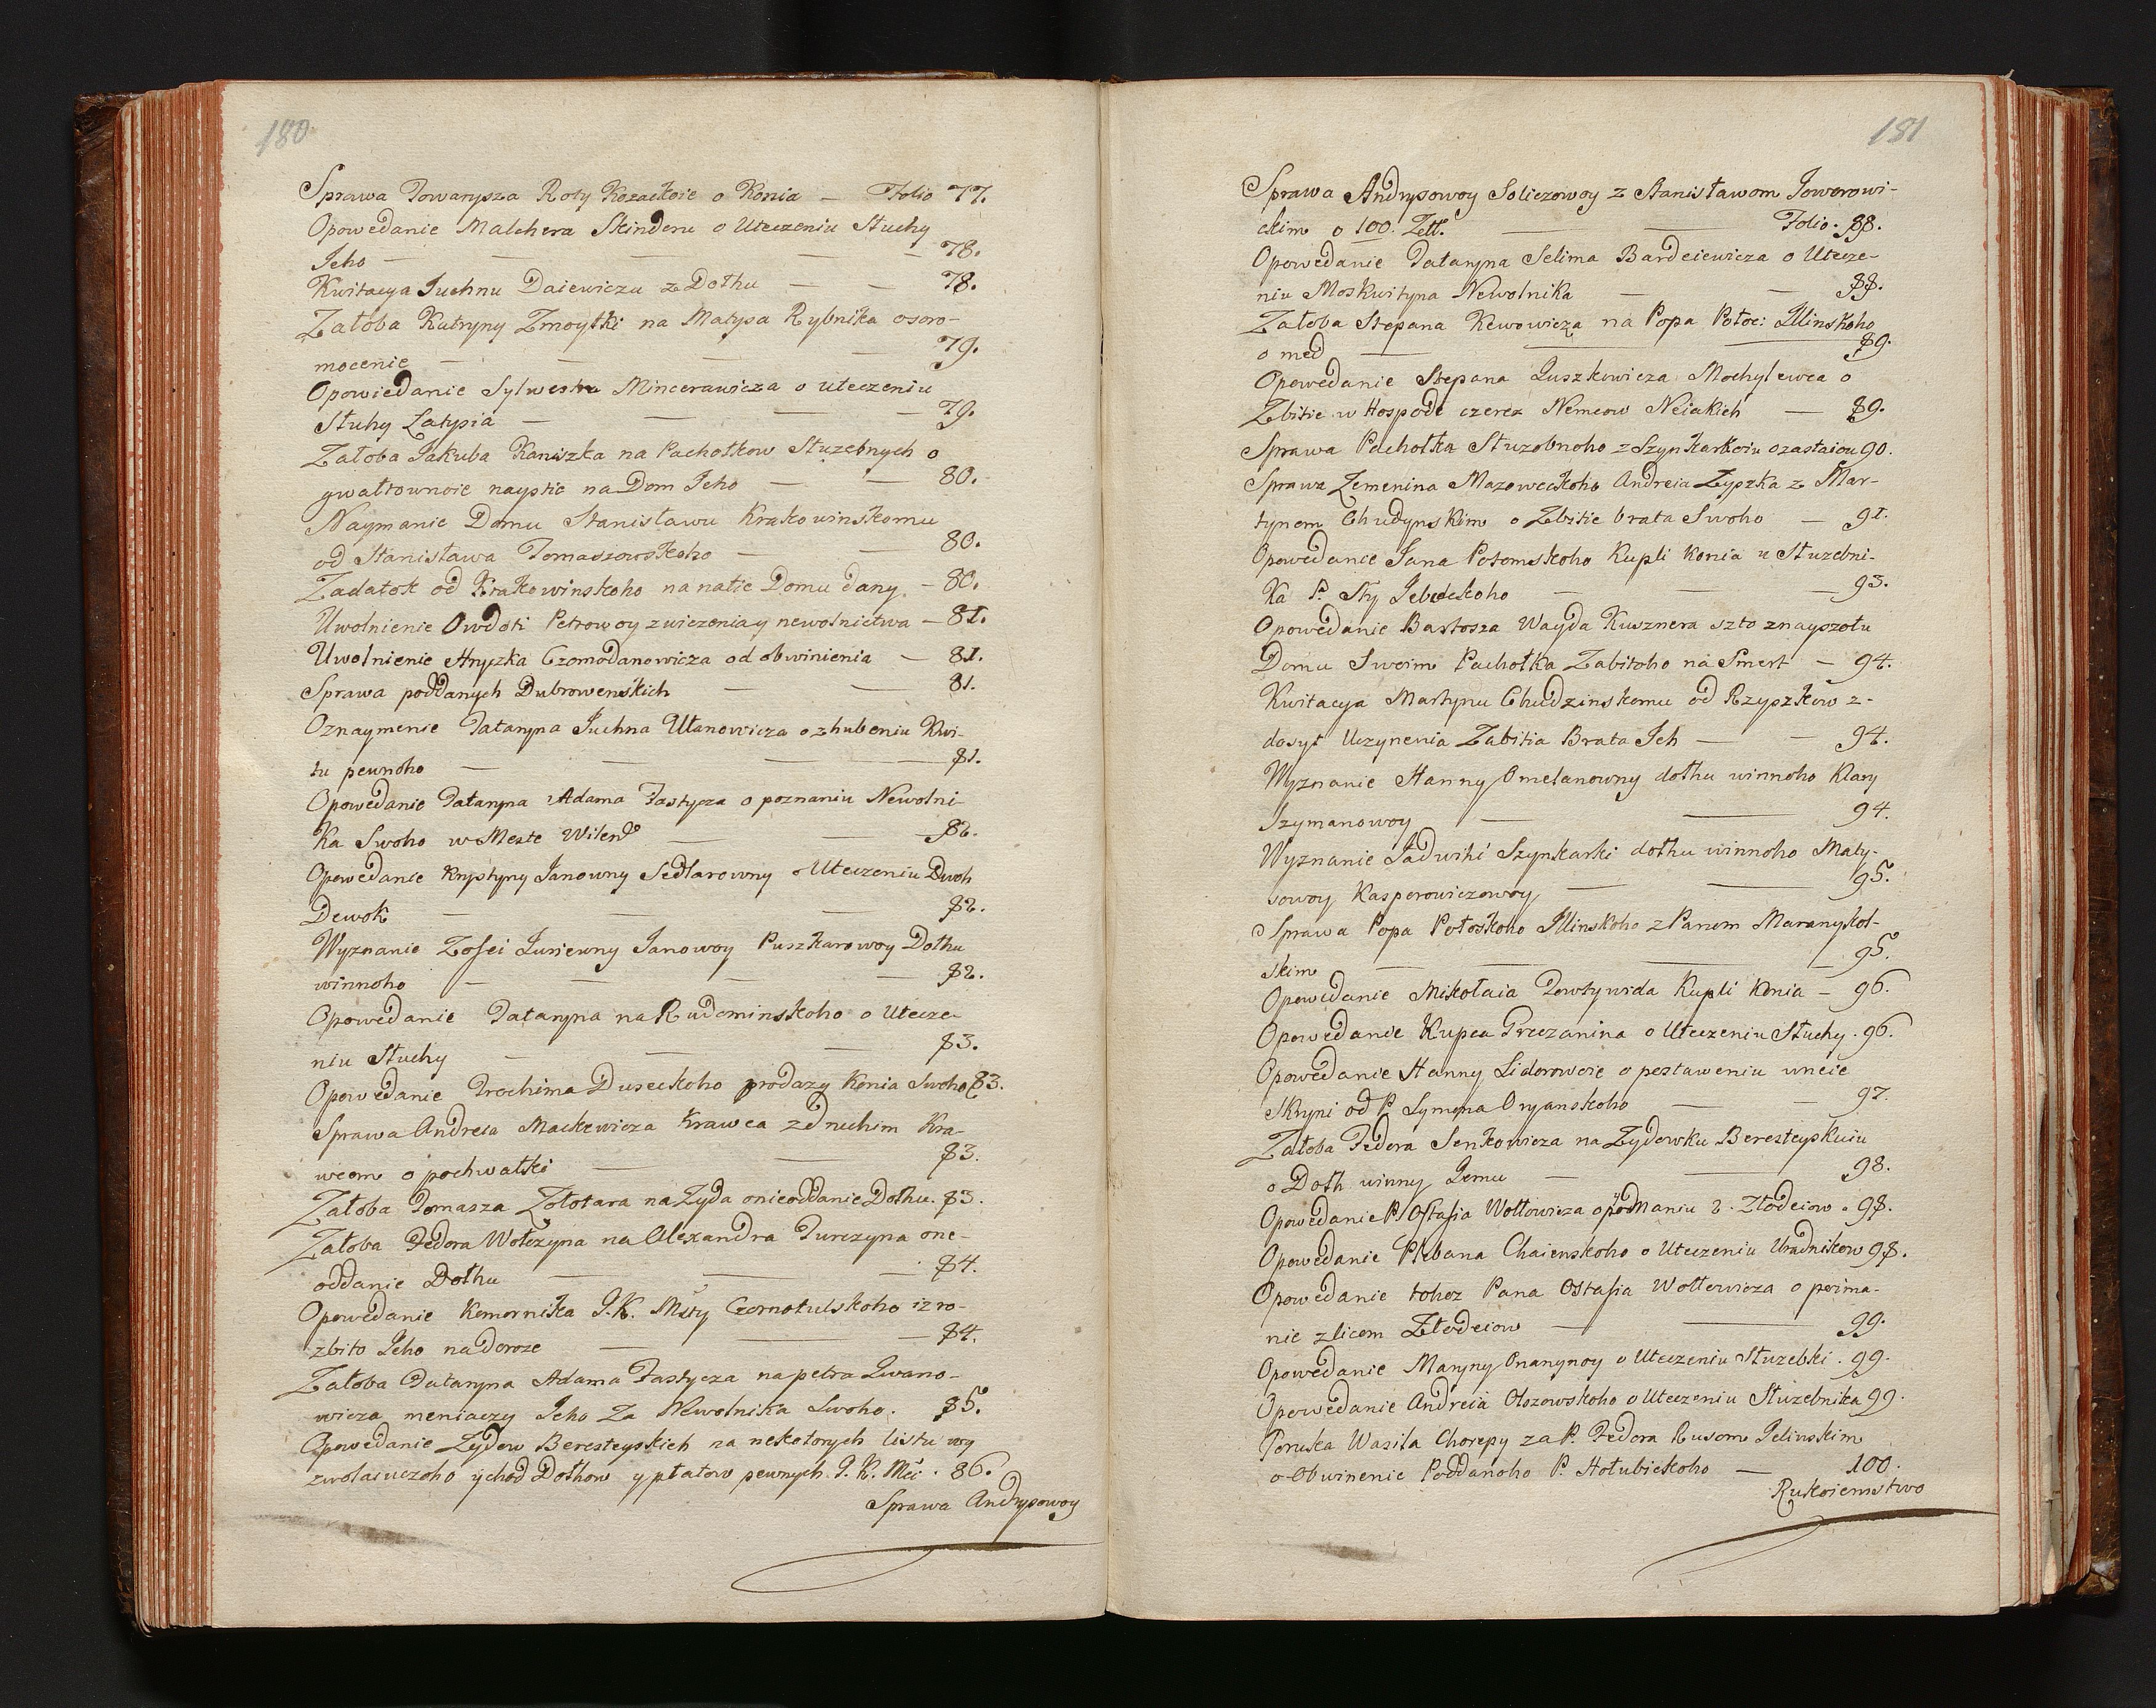 180
Sprawa Towarysza Roty Kozackoie o Konia — Folio 77.
Opowedanie Malchera Skinderu o Uteczeniu Sługy
Jeho — — — — — 78.
Kwitacya Juchnu Daiewiczu z Dołhu — — 78.
Załoba Kutryny Zmoytki na Matysa Rybnika osoro-
mocenie — — — — 79.
Opowiedanie Sylwestra Mincerawicza o uteczeniu
Słuhy Łatysia — — — — 79.
Załoba Jakuba Kaniszka na Pachołkow Słuzebnych o
gwałtownoie nayście na Dom Jeho — — 80.
Naymanie Domu Stanisławu Krakowinskomu
od Stanisława Tomaszowskoho — — 80.
Zadatok od Krakowinskoho na natie Domu dany. — 80.
Uwolnienie Owdoti Petrowoy z wiezenia y newolnictwa — 81.
Uwolnienie Hryszka Czomodanowicza od obwinienia — 81.
Sprawa poddanych Dubrowenskich — — 81.
Oznaymenie Tataryna Juchna Ułanowicza o zhubeniu Kwi-
tu pewnoho — — — — 81.
Opowedanie Tataryna Adama Fastycza o poznaniu Newolni-
Ka Swoho w Meste Wilen͠ — — 82.
Opowedanie Krystyny Janowny Sedlarowny o Uteczeniu Dwoh
Dewok — — — 82.
Wyznanie Zofei Jurjewny Janowoy Puszkarowoy Dołhu
winnoho — — — — 82.
Opowedanie Tataryna na Rudominskoho o Utecze-
niu Słuhy — — — 83.
Opowedanie Trochima Duseckoho prodazy Konia Swoho 83.
Sprawa Andreia Mackewicza Krawca z druhim Kra-
wcom o pochwałki — — 83.
Załoba Tomasza Zołotara na Zyda o nieoddanie Dołhu. 83.
Załoba Fedora Wołczyna na Alexandra Turczyna o ne-
oddanie Dołhu — — — 84.
Opowedanie Komornika J.K. Msty Czornotulskoho iz ro-
zbito Jeho na doroze — — — 84.
Załoba Tataryna Adama Fastycza na petra Iwano-
wicza meniaczy Jeho Za Newolnika Swoho. 85.
Opowedanie Zydow Beresteyskich na nekotorych listu wy
zwolaiuczoho ychod Dołhow y płatow pewnych. J. K. Mći. 86.
Sprawa Andrysowoy
181
Sprawa Andrysowoy Soliczowoy z Stanisławom Joworowi-
ckim o 100. Zełł. — — Folio. 88.
Opowedanie Tataryna Selima Bardeiewicza o Utecze-
niu Moskwityna Newolnika — — 88.
Załoba Stepana Kewowicza na Popa Połoc: Illinskoho
o med — — — 89.
Opowedanie Stepana Łuszkowicza Mochylewca o
Zbitie w Hospode czerez Nemcow Neiakich — 89.
Sprawa Pachołka Słuzobnoho z Szynkarkoiu o zastaiou 90.
Sprawa Zemenina Mazoweckoho Andreia Zyszka z Mar-
tynom Chudynskim o Zbitie brata Swoho — 91.
Opowedanie Jana Potomskoho Kupli konia u Słuzebni-
Ka P. Sty Jebidckoho — — — 93.
Opowedanie Bartosza Wayda Kusznera szto znayszołu
Domu Swoim Pachołka Zabitoho na Smert — 94.
Kwitacya Martynu Chudzinskomu od Rzyszkow z-
dosyt Uczynenia Zabitia Brata Jeh — — 94.
Wyznanie Hanny Omelanowny dołhu winnoho Klary
Szymanowoy — — 94.
Wyznanie Jadwihi Szynkarki dołhu winnoho Maty-
sowoy Kasperowiczowoy — — 95.
Sprawa Popa Połoskoho Illinskoho z Panom Maranyskol-
skim — — — — 95.
Opowedanie Mikołaia Dowtywida Kupli Konia — 96.
Opowedanie Kupca Greczanina o Uteczeniu Słuchy. 96.
Opowedanie Hanny Sidorowoie o postaweniu uneie
Skryni od P. Symona Oryanskoho — — 97.
Załoba Fedora Senkowicza na Zydowku Beresteyskuiu
o Dołh winny Jemu — — 98.
Opowedanie P. Ostafia Wołłowicza o poimaniu 2. Złodeiow. 98.
Opowedanie Plebana Chaienskoho o Uteczeniu Uradnikow 98.
Opowedanie tohoz Pana Ostafia Wołłowicza o poima-
nie z licom Złodeiow — — 99.
Opowedanie Maryny Onanynoy o Uteczeniu Słuzebki. 99.
Opowedanie Andreia Olszowskoho o Uteczeniu Słuzebnika 99.
Poruka Wasila Chorepy za P. Fedora Rusom Jelinskim
o Obwinenie Poddanoho P. Hołubickoho — 100.
Rukoiemstwo